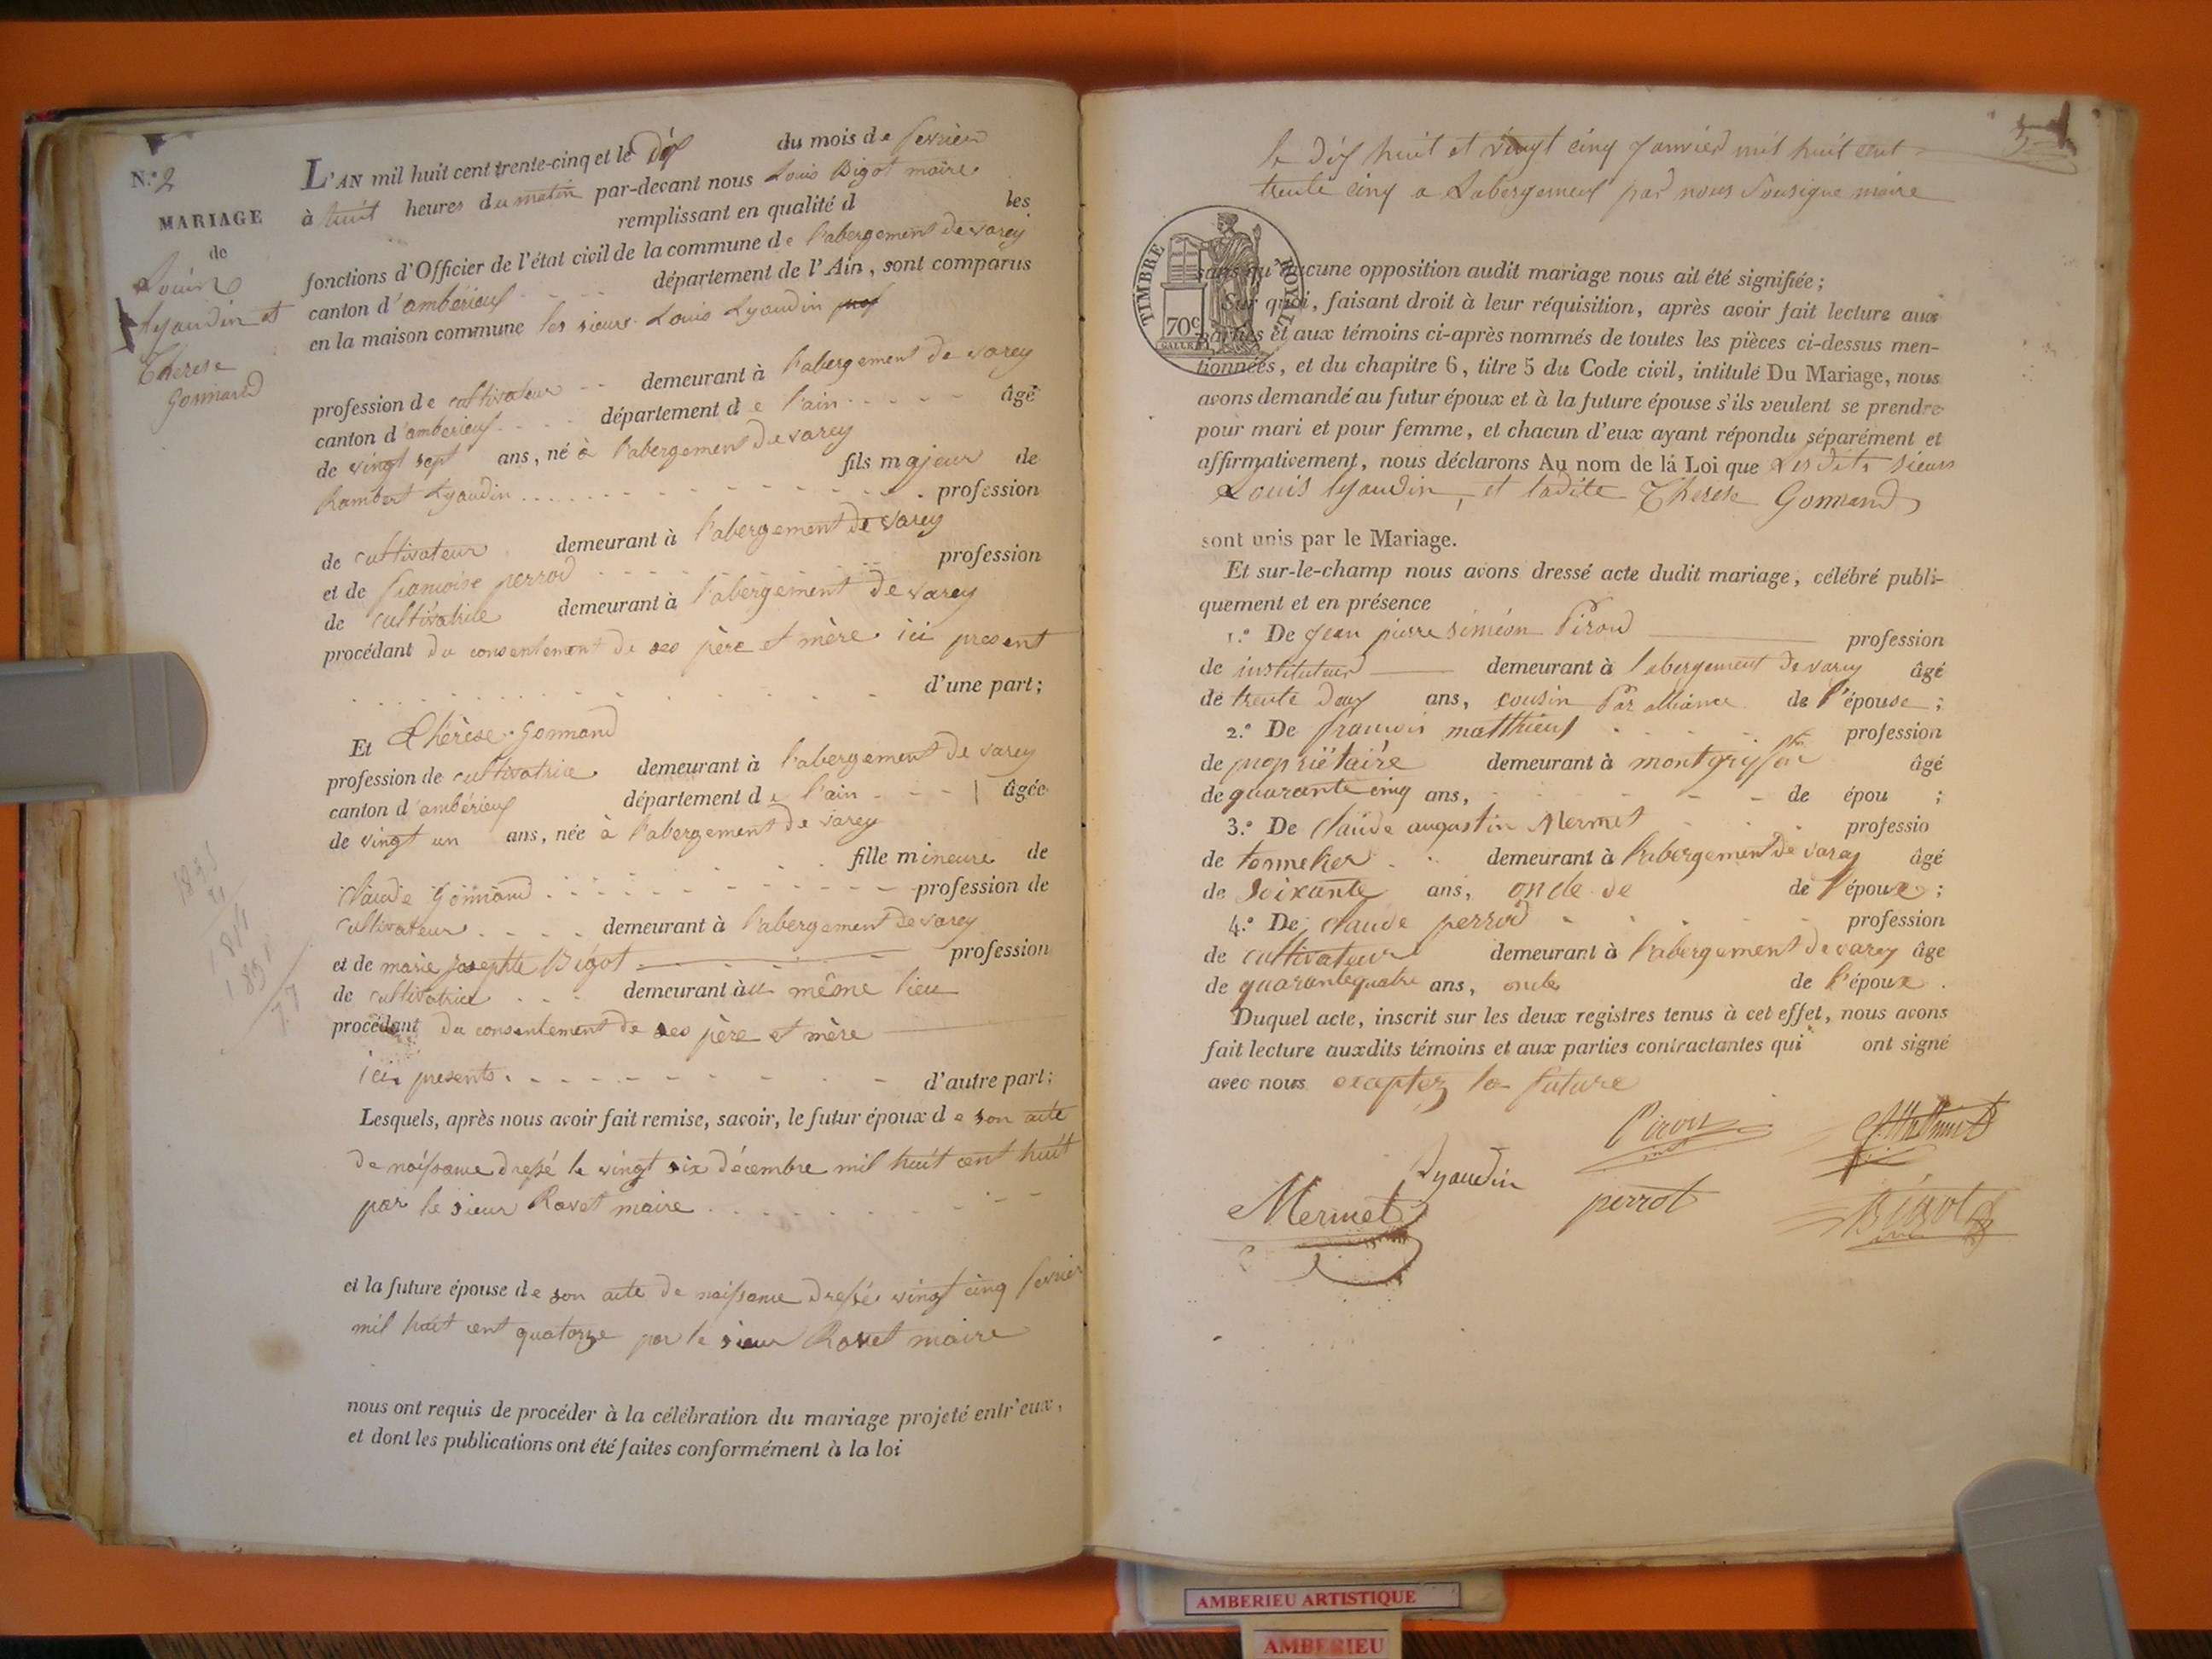 N.º 2
MARIAGE
de
Louis
Lyaudin et
Therese
Gonnand
L'AN mil huit cent trente-cinq et le dix du mois de fevrier
à huit heures du matin par-devant nous Louis Bigot maire
remplissant en qualité d les
fonctions d'Officier de l'état civil de la commune de l'abergement de varey
canton d'ambérieux département de l'Ain, sont comparus
en la maison commune les sieurs Louis Lyaudin
profession de cultivateur demeurant à l'abergement de varey
canton d'amberieux département de l'ain âgé
de vingt sept ans, né à l'abergement de varey
fils majeur de
Rambert Lyaudin profession
de cultivateur demeurant à l'abergement de varey
et de françoise perrod profession
de cultivatrice demeurant à l'abergement de varey
procédant du consentement de ses père et mère ici present
d'une part;
Et Thérèse Gonnand
profession de cultivatrice demeurant à l'abergement de varey
canton d'ambérieux département de l'ain âgée
de vingt un ans, née à l'abergement de varey
fille mineure de
Claude Gonnand profession de
cultivateur demeurant à l'abergement de varey
et de marie josephte Bigot profession
de cultivatrice demeurant àu même lieu
procédant du consentement de ses père et mère
ici presents d'autre part;
Lesquels, après nous avoir fait remise, savoir, le futur époux de son acte
de naissance dressé le vingt six décembre mil huit cent huit
par le sieur Ravet maire
et la future épouse de son acte de naissance dressé vingt cinq fevrier
mil huit cent quatorze par le sieur Ravet maire
nous ont requis de procéder à la célébration du mariage projeté entr'eux,
et dont les publications ont été faites conformément à la loi
1835
21
1814
le dix huit et vingt cinq janvier mil huit cent
trente cinq a Labergement par nous Sousigne maire
TIMBRE ROYAL
70c
sans qu'aucune opposition audit mariage nous ait été signifiée;
Sur quoi, faisant droit à leur réquisition, après avoir fait lecture aux
parties et aux témoins ci-après nommés de toutes les pièces ci-dessus men-
tionnées, et du chapitre 6, titre 5 du Code civil, intitulé Du Mariage, nous
avons demandé au futur époux et à la future épouse s'ils veulent se prendre
pour mari et pour femme, et chacun d'eux ayant répondu séparément et
affirmativement, nous déclarons Au nom de la Loi que Les dits sieurs
Louis lyaudin, et ladite Therese Gonnand
sont unis par le Mariage.
Et sur-le-champ nous avons dressé acte dudit mariage, célébré publi-
quement et en présence
1.º De Jean pierre siméon Pirod profession
de instituteur demeurant à l'abergement de varey âgé
de trente deux ans, cousin Par alliance de l'épouse;
2.º De françois matthieux profession
de propriëtaire demeurant à montgriffon âgé
de quarante cinq ans, de épou ;
3.º De Claude augustin Mermet professio
de tonnelier demeurant à l'abergement de varey âgé
de Soixante ans, oncle de de l'époux;
4.º De claude perrod profession
de cultivateur demeurant à l'abergement de varey âge
de quarante quatre ans, oncle de l'époux.
Duquel acte, inscrit sur les deux registres tenus à cet effet, nous avons
fait lecture auxdits témoins et aux parties contractantes qui ont signé
avec nous exceptez la future
Lyaudin
Mermet perrot Bigot
AMBERIEU ARTISTIQUE
AMBERIEU